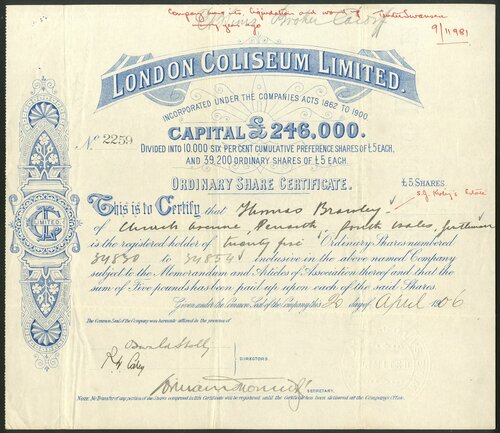 Company
liquidation and
Broker Cardiff
years ago
9/11/981
LONDON COLISEUM LIMITED.
INCORPORATED UNDER THE COMPANIES ACTS 1862 TO 1900.
CAPITAL £246,000.
No. 2259
DIVIDED INTO 10,000 SIX PER CENT CUMULATIVE PREFERENCE SHARES OF £5 EACH,
AND 39,200 ORDINARY SHARES OF £5 EACH.
ORDINARY SHARE CERTIFICATE.
£5 SHARES.
Estate
This is to Certify that Thomas
of Avenue, Penarth, South Wales, gentleman
is the registered holder of twenty five Ordinary Shares numbered
34830 to 34854 inclusive in the above named Company
subject to the Memorandum and Articles of Association thereof and that the
sum of Five pounds has been paid up upon each of the said Shares.
Given under the Common Seal of the Company this day of April 1906
The Common Seal of the Company was hereunto affixed in the presence of
LIMITED
DIRECTORS.
SECRETARY.
NOTE: No Transfer of any portion of the Shares comprised in this Certificate will be registered until the Certificate has been delivered at the Company's Office.